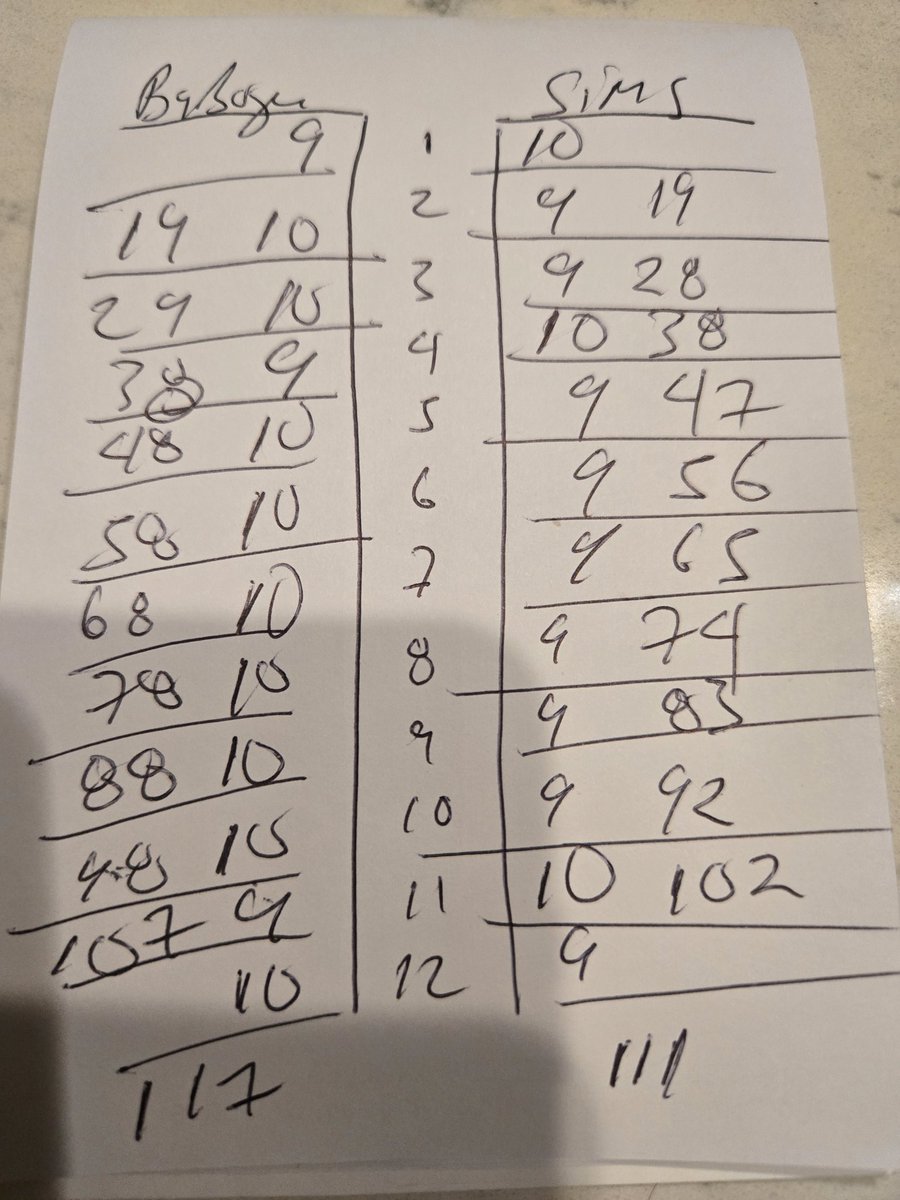 Sims
9 1 10
19 10 2 9 19
29 10 3 9 28
38 9 4 10 38
48 10 5 9 47
58 10 6 9 56
68 10 7 9 65
78 10 8 9 74
88 10 9 9 83
98 10 10 9 92
107 9 11 10 102
10 12 9
117 111